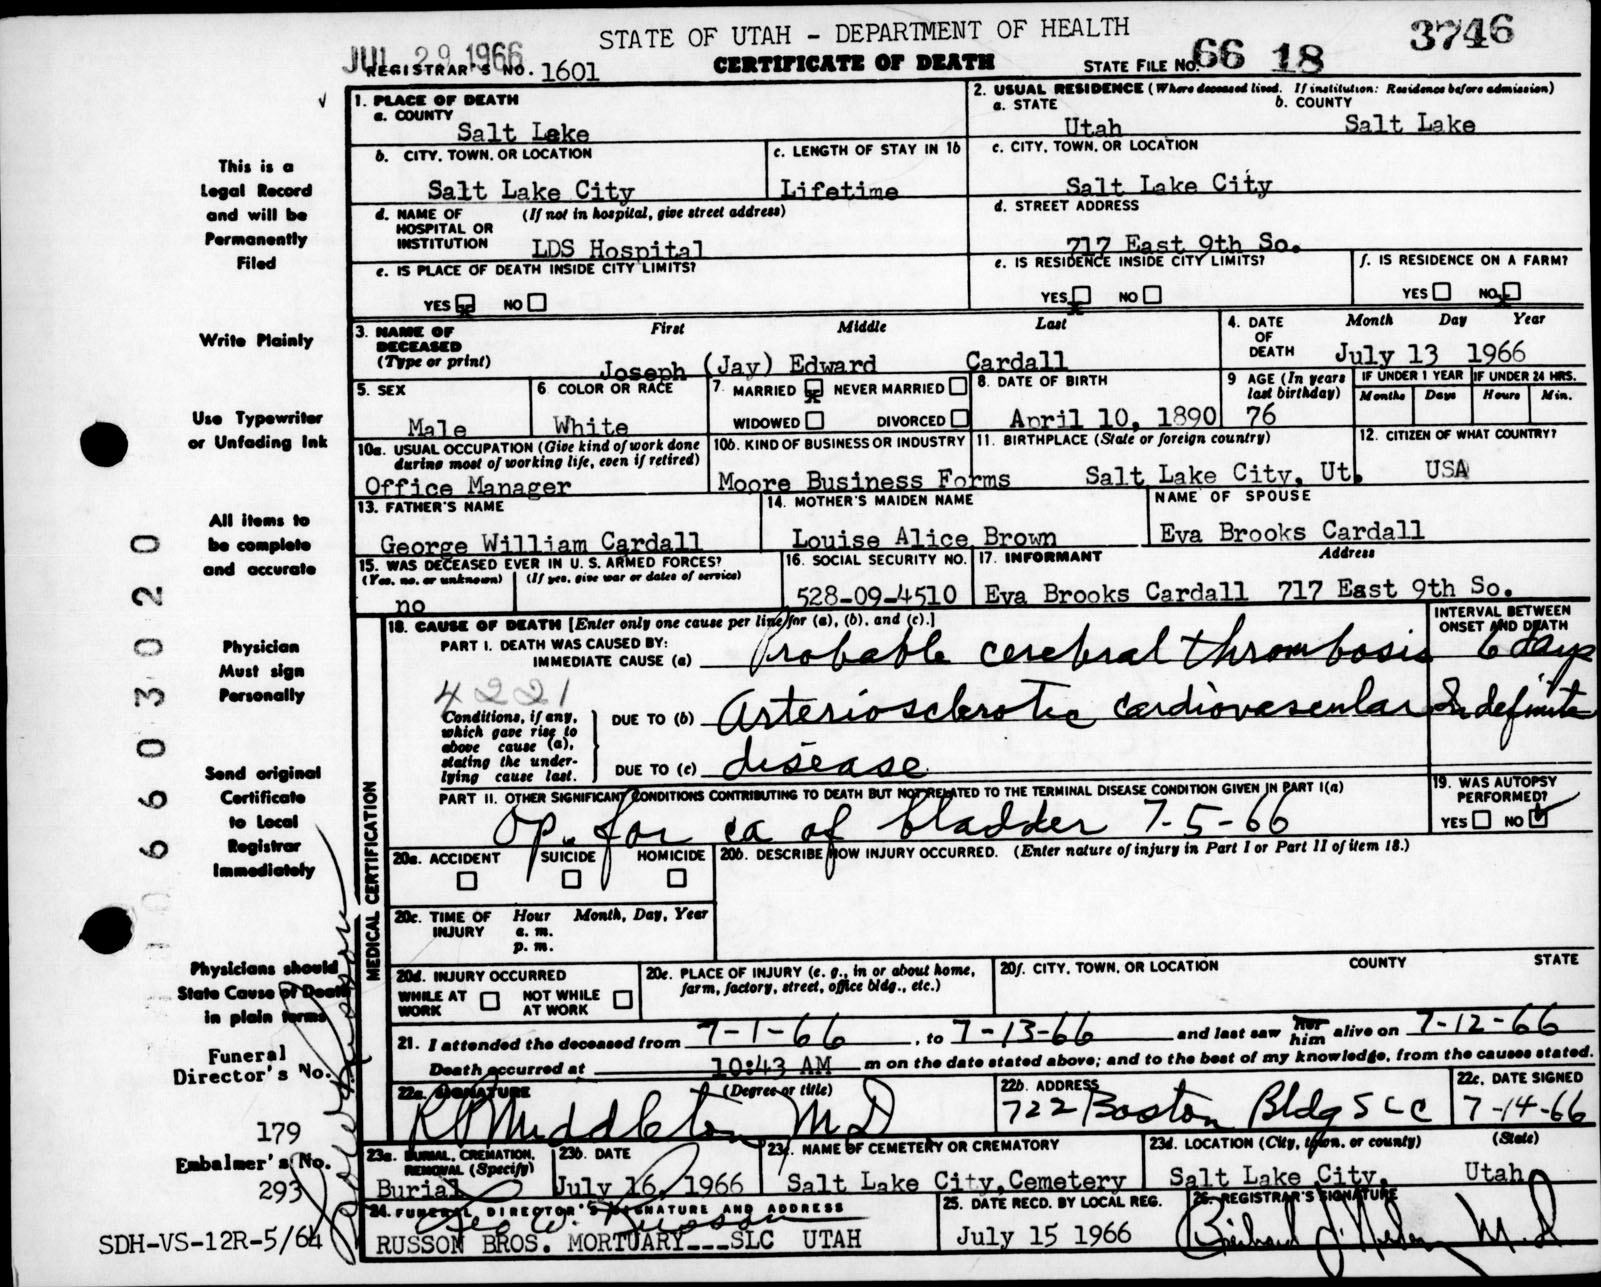 STATE OF UTAH - DEPARTMENT OF HEALTH
3746
JUL 29 1966
REGISTRAR'S NO. 1601
CERTIFICATE OF DEATH
STATE FILE NO. 66 18
1. PLACE OF DEATH
a. COUNTY
Salt Lake
2. USUAL RESIDENCE (Where deceased lived. If institution: Residence before admission)
a. STATE
b. COUNTY
Utah
Salt Lake
b. CITY, TOWN, OR LOCATION
Salt Lake City
c. LENGTH OF STAY IN 1b
Lifetime
c. CITY, TOWN, OR LOCATION
Salt Lake City
d. NAME OF HOSPITAL OR INSTITUTION
(If not in hospital, give street address)
LDS Hospital
d. STREET ADDRESS
717 East 9th So.
e. IS PLACE OF DEATH INSIDE CITY LIMITS?
YES x NO
e. IS RESIDENCE INSIDE CITY LIMITS?
YES x NO
f. IS RESIDENCE ON A FARM?
YES NO x
3. NAME OF DECEASED
(Type or print)
First Middle Last
Joseph (Jay) Edward Cardall
4. DATE OF DEATH
Month Day Year
July 13 1966
5. SEX
Male
6. COLOR OR RACE
White
7. MARRIED x NEVER MARRIED
WIDOWED DIVORCED
8. DATE OF BIRTH
April 10, 1890
9 AGE (In years last birthday)
76
IF UNDER 1 YEAR
Months Days
IF UNDER 24 HRS.
Hours Min.
10a. USUAL OCCUPATION (Give kind of work done during most of working life, even if retired)
Office Manager
10b. KIND OF BUSINESS OR INDUSTRY
Moore Business Forms
11. BIRTHPLACE (State or foreign country)
Salt Lake City, Ut.
12. CITIZEN OF WHAT COUNTRY?
USA
13. FATHER'S NAME
George William Cardall
14. MOTHER'S MAIDEN NAME
Louise Alice Brown
NAME OF SPOUSE
Eva Brooks Cardall
15. WAS DECEASED EVER IN U. S. ARMED FORCES?
(Yes, no, or unknown) (If yes, give war or dates of service)
no
16. SOCIAL SECURITY NO.
528-09-4510
17. INFORMANT Address
Eva Brooks Cardall 717 East 9th So.
MEDICAL CERTIFICATION
18. CAUSE OF DEATH [Enter only one cause per line for (a), (b), and (c).]
INTERVAL BETWEEN ONSET AND DEATH
PART I. DEATH WAS CAUSED BY:
IMMEDIATE CAUSE (a) Probable cerebral thrombosis 6 days
4221
Conditions, if any, which gave rise to above cause (a), stating the underlying cause last.
DUE TO (b) Arteriosclerotic cardiovascular Indefinite
DUE TO (c) disease
PART II. OTHER SIGNIFICANT CONDITIONS CONTRIBUTING TO DEATH BUT NOT RELATED TO THE TERMINAL DISEASE CONDITION GIVEN IN PART I(a)
Op. for ca of bladder 7-5-66
19. WAS AUTOPSY PERFORMED?
YES NO ✓
20a. ACCIDENT SUICIDE HOMICIDE
20b. DESCRIBE HOW INJURY OCCURRED. (Enter nature of injury in Part I or Part II of item 18.)
20c. TIME OF INJURY
Hour Month, Day, Year
a. m.
p. m.
20d. INJURY OCCURRED
WHILE AT WORK NOT WHILE AT WORK
20e. PLACE OF INJURY (e. g., in or about home, farm, factory, street, office bldg., etc.)
20f. CITY, TOWN, OR LOCATION COUNTY STATE
21. I attended the deceased from 7-1-66, to 7-13-66 and last saw her him alive on 7-12-66
Death occurred at 10:43 AM m on the date stated above; and to the best of my knowledge, from the causes stated.
22a. SIGNATURE (Degree or title)
R P Middleton M D
22b. ADDRESS
722 Boston Bldg S L C
22c. DATE SIGNED
7-14-66
23a. BURIAL, CREMATION, REMOVAL (Specify)
Burial
23b. DATE
July 16, 1966
23c. NAME OF CEMETERY OR CREMATORY
Salt Lake City, Cemetery
23d. LOCATION (City, town, or county) (State)
Salt Lake City, Utah
24. FUNERAL DIRECTOR'S SIGNATURE AND ADDRESS
Geo W. Russon
RUSSON BROS. MORTUARY___SLC UTAH
25. DATE RECD. BY LOCAL REG.
July 15 1966
26. REGISTRAR'S SIGNATURE
M D
This is a
Legal Record
and will be
Permanently
Filed
Write Plainly
Use Typewriter
or Unfading Ink
All items to
be complete
and accurate
Physician
Must sign
Personally
Send original
Certificate
to Local
Registrar
Immediately
Physicians should
State Cause of Death
in plain terms
Funeral
Director's No.
179
Embalmer's No.
293
SDH-VS-12R-5/64
6603020